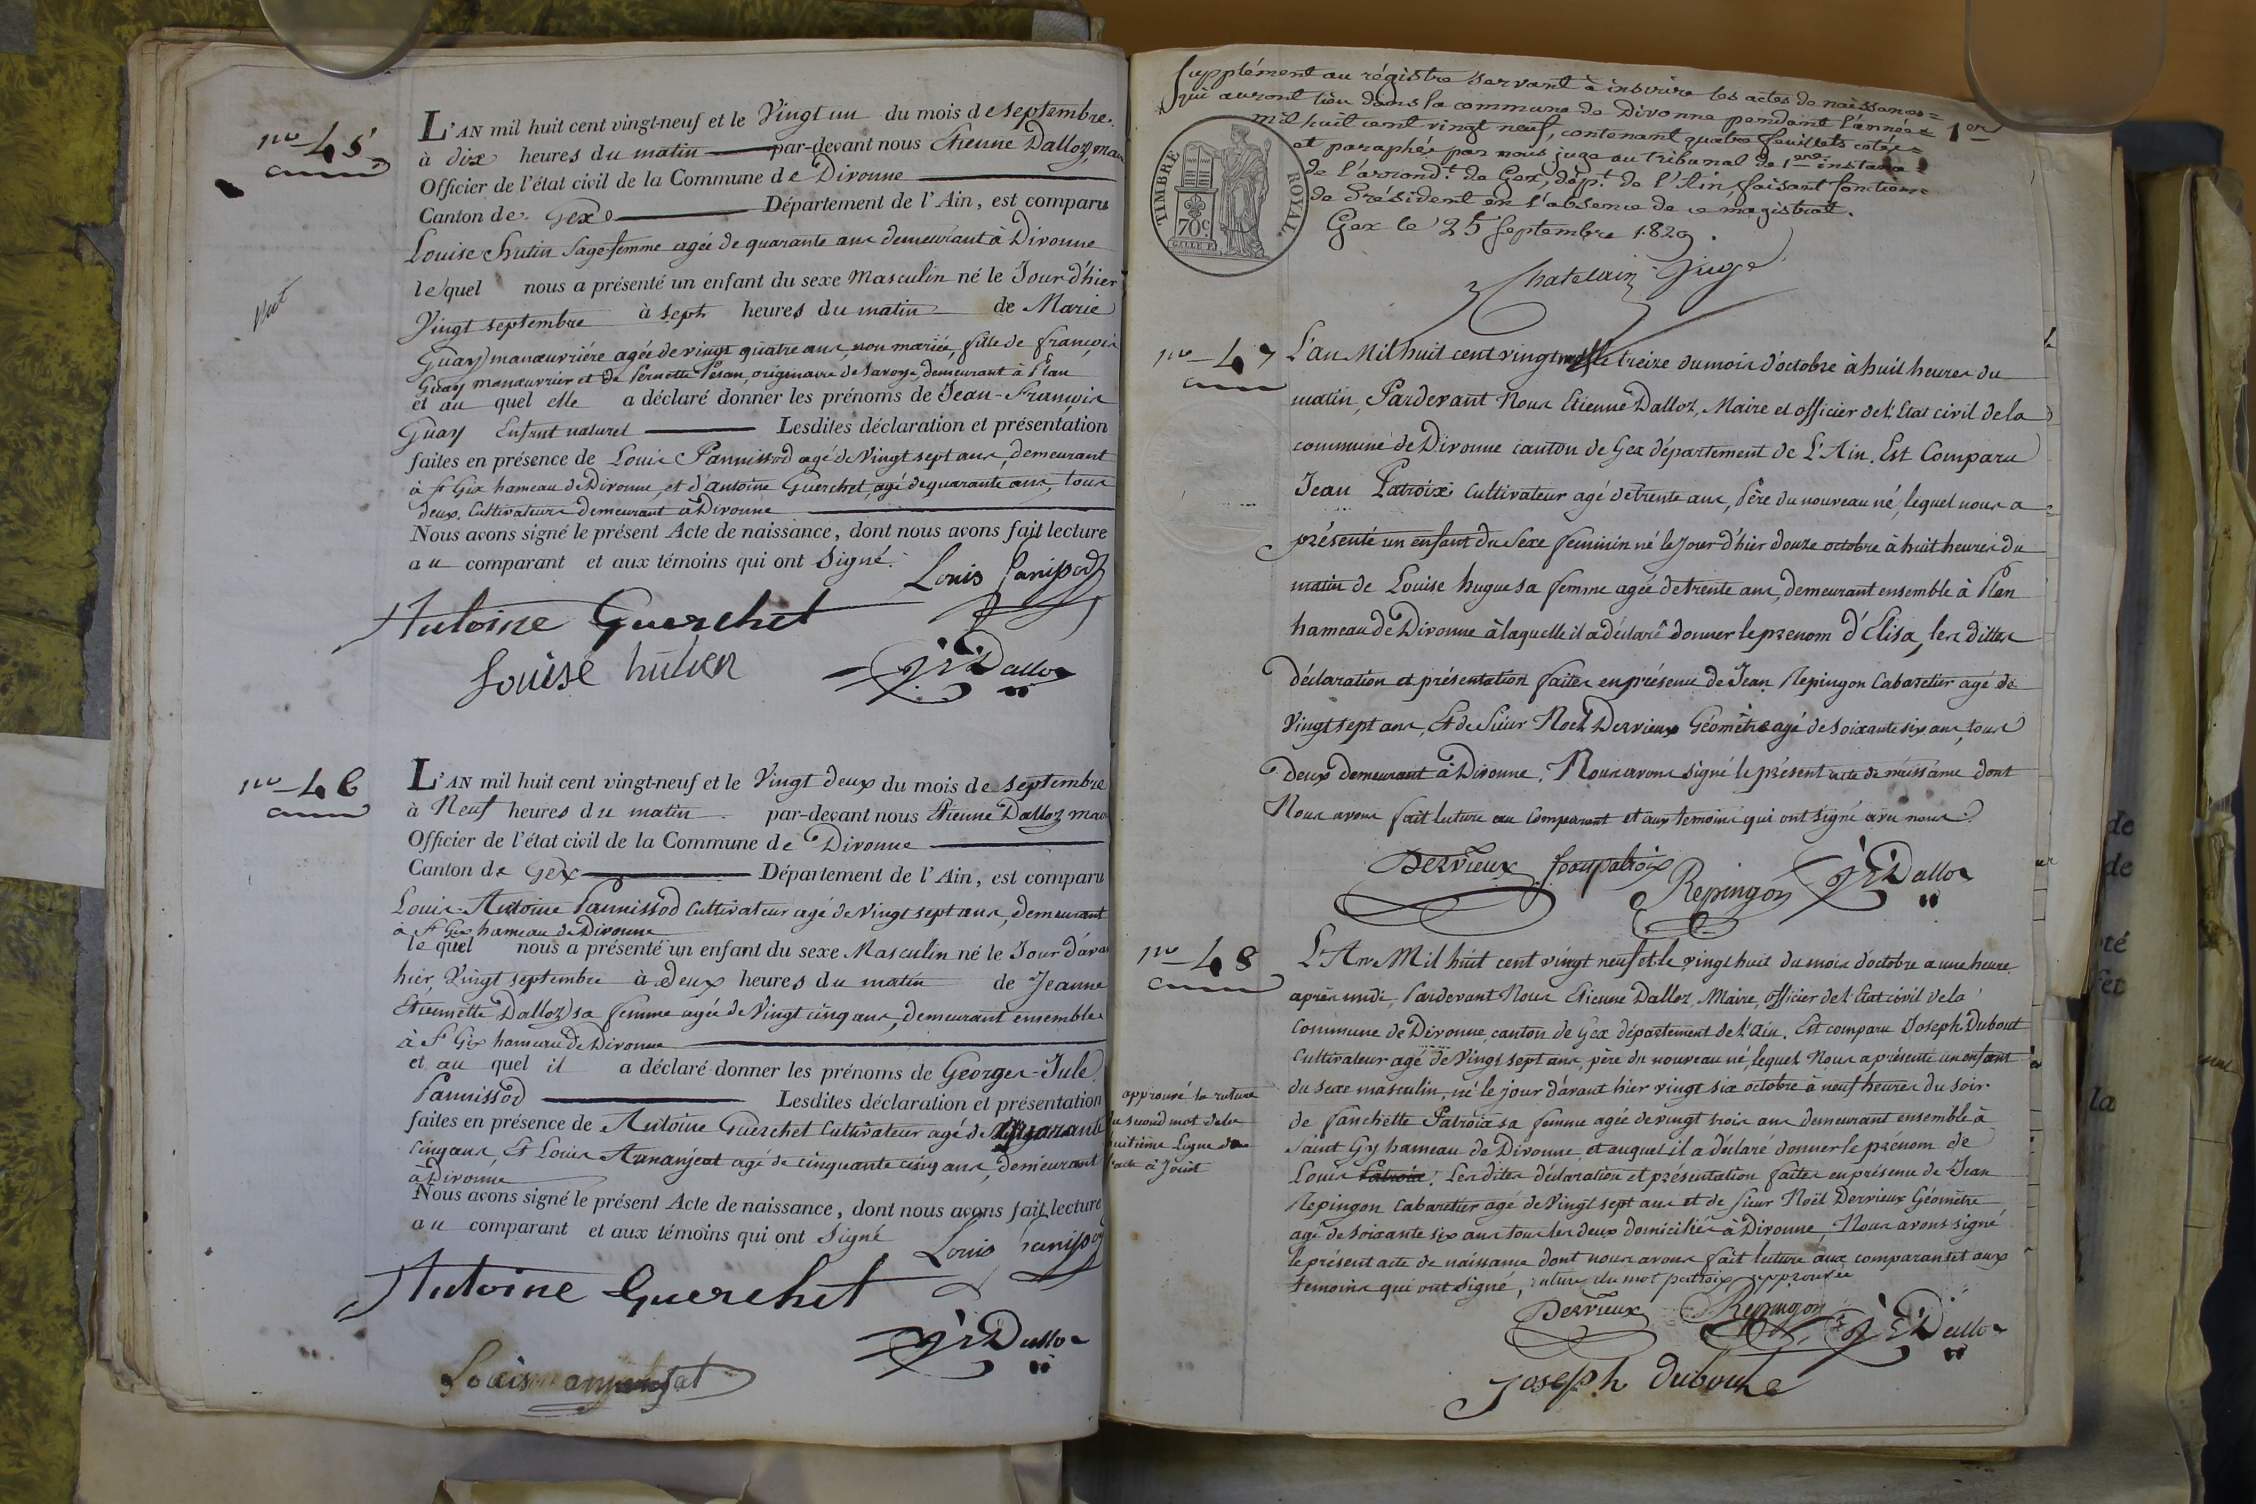 n° 45
L'AN mil huit cent vingt-neuf et le Vingt un du mois de septembre
à dix heures du matin par-devant nous Etienne Dalloz, mai
Officier de l'état civil de la Commune de Divonne
Canton de Gex Département de l'Ain, est comparu
Louise hutin Sage-femme agée de quarante ans demeurant à Divonne
lequel nous a présenté un enfant du sexe Masculin né le Jour d'hier
Vingt septembre à sept heures du matin de Marie
Guay manœuvrière agée de vingt quatre ans, non mariée, fille de françois
Guay manœuvrier et de Pernette Pesan, originaire de Savoye, demeurant à Plan
et au quel elle a déclaré donner les prénoms de Jean-François
Guay Enfant naturel Lesdites déclaration et présentation
faites en présence de Louis Pannissod agé de Vingt sept ans, demeurant
à St Gix hameau de Divonne, et d'antoine Guerchet, agé de quarante ans, tous
deux Cultivateurs demeurant à Divonne
Nous avons signé le présent Acte de naissance, dont nous avons fait lecture
au comparant et aux témoins qui ont Signé.
Louis panissod
Antoine Guerchet
Louise hutin
Dalloz
n° 46
L'AN mil huit cent vingt-neuf et le Vingt deux du mois de septembre
à Neuf heures du matin par-devant nous Etienne Dalloz mai
Officier de l'état civil de la Commune de Divonne
Canton de Gex Département de l'Ain, est comparu
Louis-Antoine Pannissod Cultivateur agé de Vingt sept ans, demeurant
à St Gix hameau de Divonne
le quel nous a présenté un enfant du sexe Masculin né le Jour d'avan
hier, Vingt septembre à Deux heures du matin de Jeanne
Etiennette Dalloz sa femme agée de Vingt cinq ans, demeurant ensemble
à St Gix hameau de Divonne
et au quel il a déclaré donner les prénoms de Georges-Jule
Pannissod Lesdites déclaration et présentation
faites en présence de Antoine Guerchet Cultivateur agé de quarante
Cinq ans, Et Louis agé de cinquante cinq ans, demeurant
à Divonne
Nous avons signé le présent Acte de naissance, dont nous avons fait lecture
au comparant et aux témoins qui ont Signé
Louis panissod
Antoine Guerchet
Dalloz
Louis
Supplément au régistre servant à inscrire les actes de naissances
qui auront lieu dans la commune de Divonne pendant l'année
mil huit cent vingt neuf, contenant quatre feuillets cotés
et paraphés par nous juge au tribunal de 1ere instance
de l'arrondt de Gex, dépt de l'Ain, faisant fonctions
de Président en l'absence de ce magistrat.
Gex le 25 Septembre 1829.
1er
TIMBRE ROYAL
70c
Chatelain Juge
n° 47
L'an Mil huit cent vingt neuf le treize du mois d'octobre à huit heures du
matin, Pardevant Nous Etienne Dalloz, Maire et officier de l'Etat civil de la
commune de Divonne canton de Gex département de L'Ain. Est Comparu
Jean Patroix Cultivateur agé de trente ans, Père du nouveau né, lequel nous a
présenté un enfant du Sexe féminin né le jour d'hier douze octobre à huit heures du
matin de Louise hugue sa femme agée de trente ans, demeurant ensemble à Plan
hameau de Divonne à laquelle il a déclaré donner le prenom d'Elisa, les dittes
déclaration et présentation faites en présence de Jean Repingon Cabaretier agé de
Vingt sept ans, Et de Sieur Noël Dervieux Géomètre agé de soixante six ans, tous
deux demeurant à Divonne. Nous avons signé le présent acte de naissance dont
Nous avons fait lecture au Comparant et aux temoins qui ont signé avec nous.
Dervieux Jean patroix Repingon Dalloz
n° 48
L'An Mil huit cent vingt neuf et le vingt huit du mois d'octobre a une heure
après midi, Pardevant Nous Etienne Dalloz, Maire, officier de l'Etat civil de la
Commune de Divonne, canton de Gex département de l'Ain. Est comparu Joseph Dubout
Cultivateur agé de Vingt sept ans, père du nouveau né, lequel Nous a présenté un enfant
du sexe masculin, né le jour d'avant hier vingt six octobre à neuf heures du soir
de fanchette Patroix sa femme agée de vingt trois ans demeurant ensemble à
Saint Gy hameau de Divonne, et auquel il a déclaré donner le prénom de
Louis Patroix. Les dites déclaration et présentation faites en présence de Jean
Repingon Cabaretier agé de Vingt sept ans et de Sieur Noël Dervieux Géomètre
agé de soixante six ans tous les deux domiciliés à Divonne, Nous avons signé
le présent acte de naissance dont nous avons fait lecture aux comparants et aux
témoins qui ont signé, rature du mot patroix approuvée
approuvé la rature
du second mot de la
huitième Ligne de
l'acte ci joint
Dervieux Repingon Dalloz
Joseph duboute